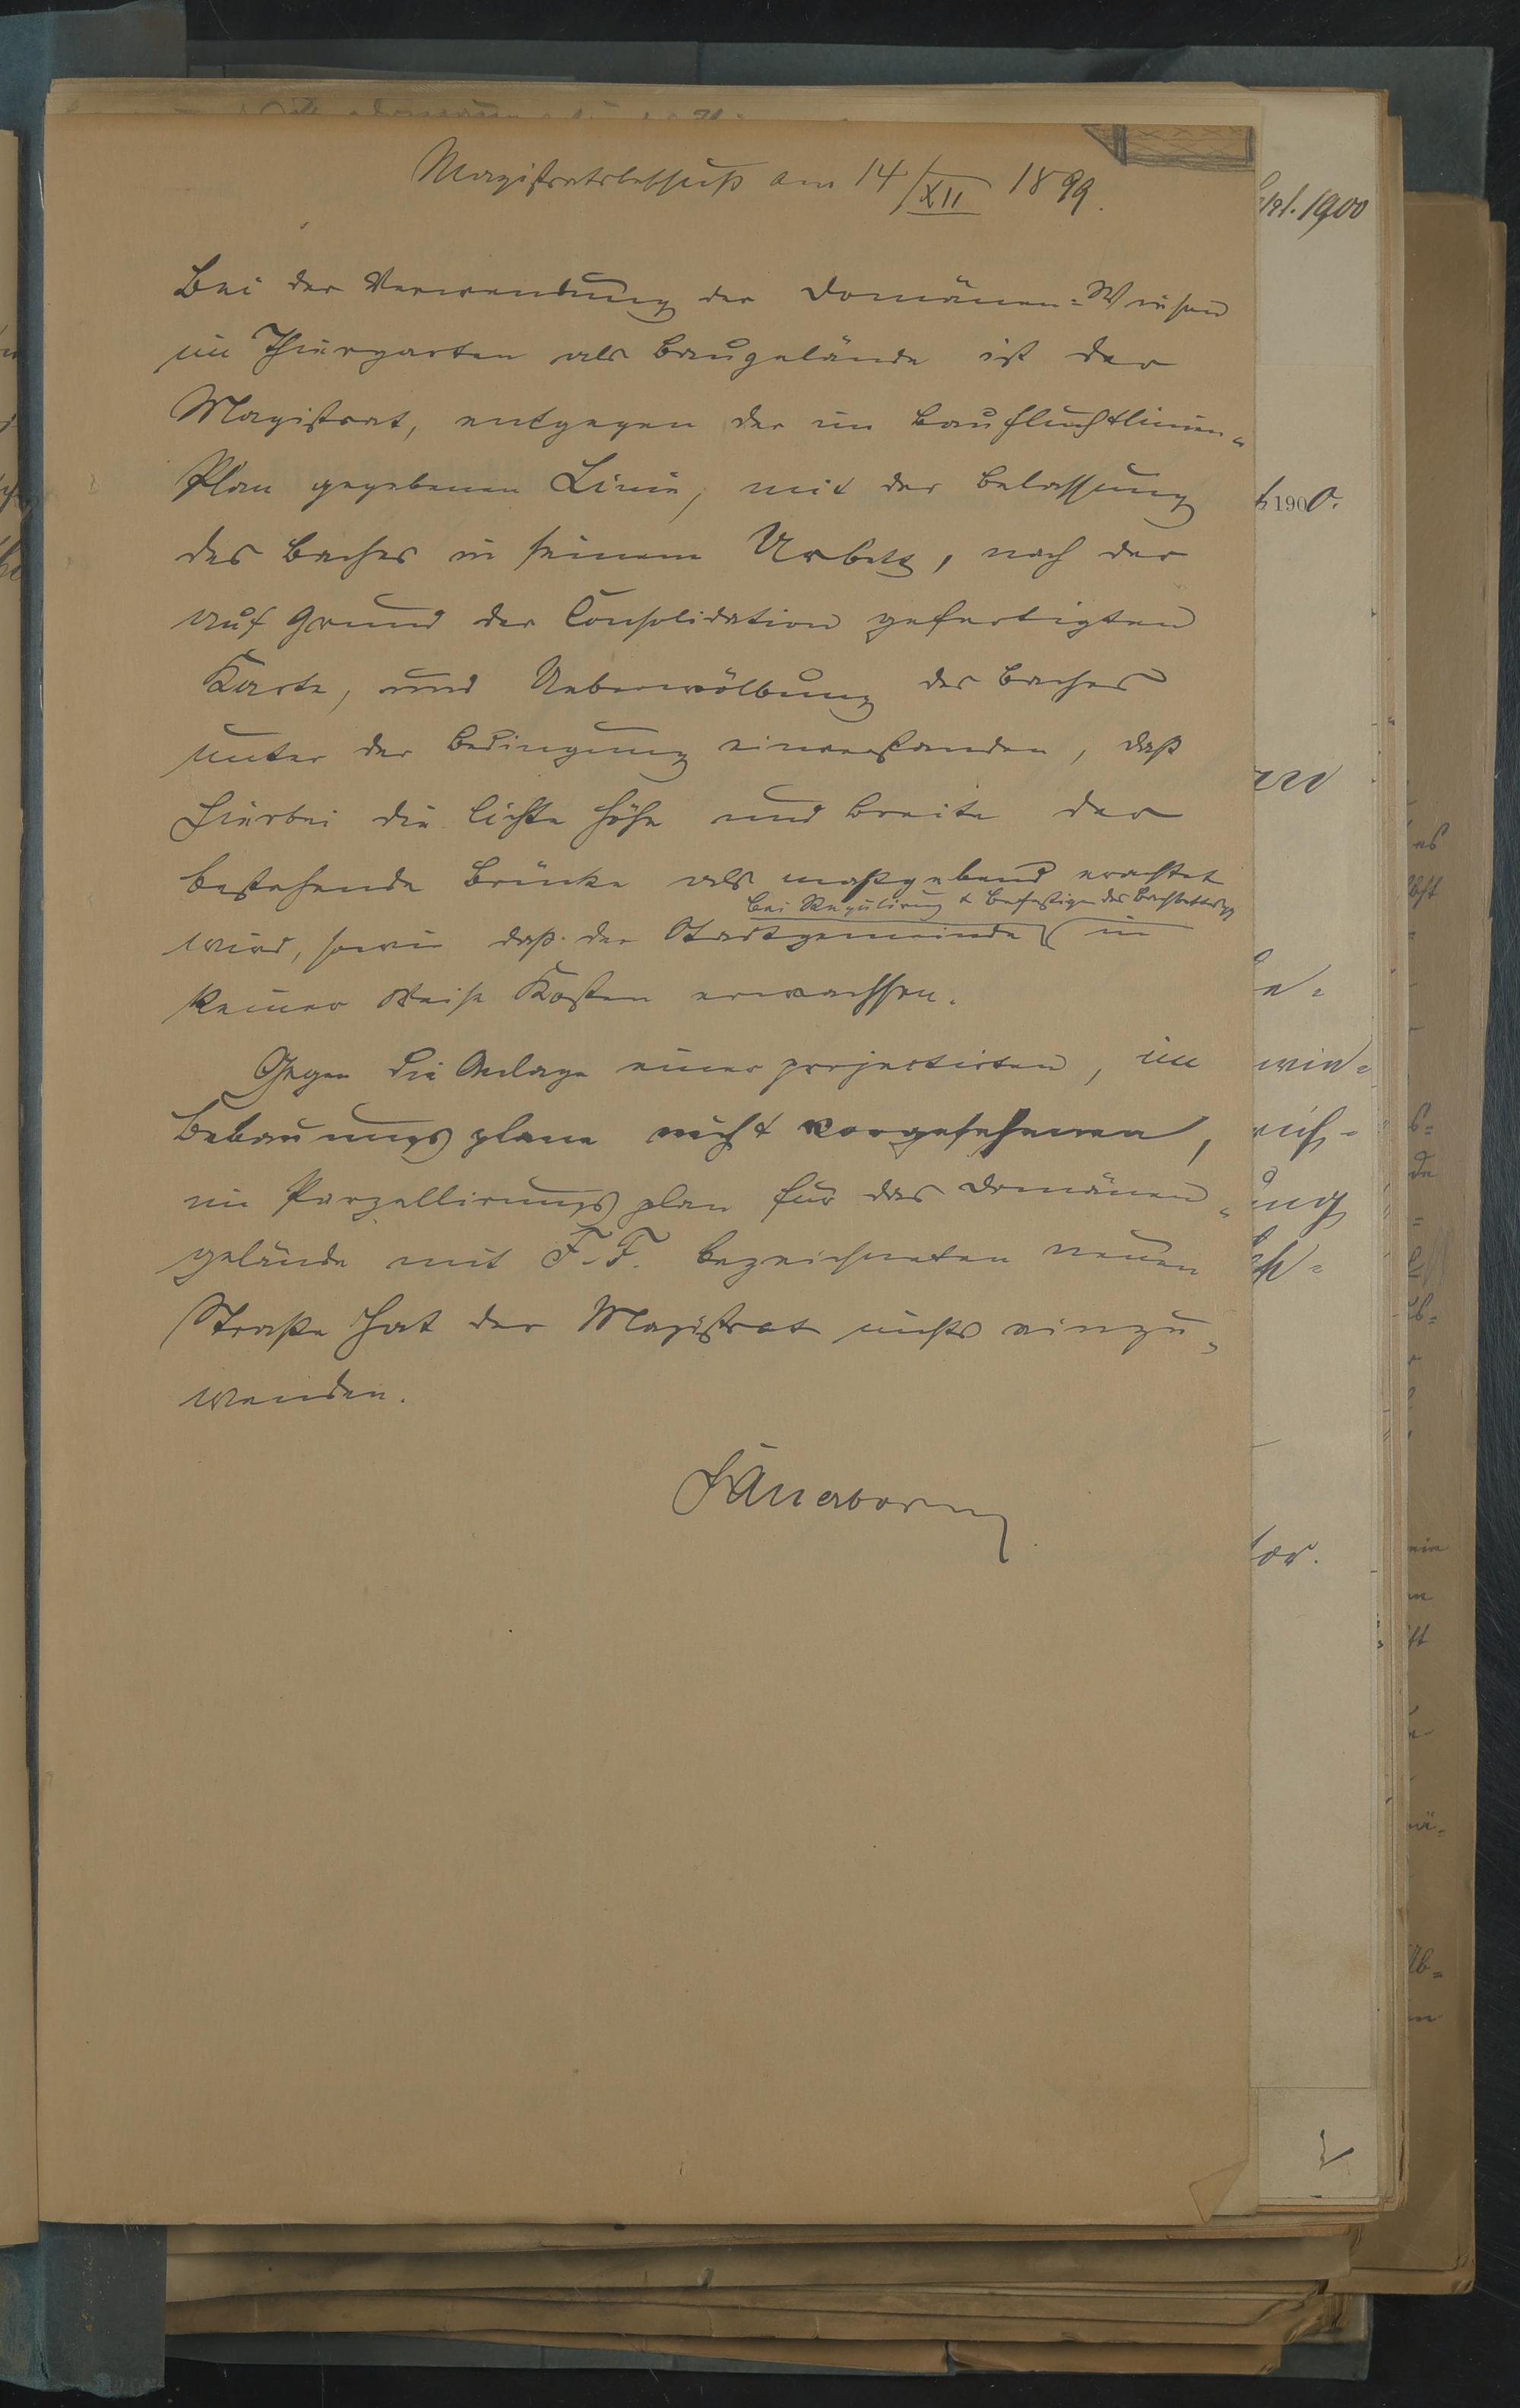 Magistratsbeschluß am 14/XII 1899.
Bei der Verwendung der Domänen-Wiesen
im Thiergarten als Baugelände ist der
Magistrat, entgegen der im Baufluchtlinien-
Plan gegebenen Linie, mit der Belassung
des Baches in seinem Urbett, nach der
auf Grund der Consolidation gefertigten
Karte, und Ueberwölbung des Baches
unter der Bedingung einverstanden, daß
hierbei die lichte Höhe und Breite der
bestehende Brücke als maßgebend erachtet
bei Regulirung & Befestigen des Bachbettes
wird, sowie daß der Stadtgemeinde in
keiner Weise Kosten erwachsen.
Gegen die Anlage einer projectirten, im
Bebauungsplane nicht vorgesehenen,
im Parzellirungsplan für das Domänen-
gelände mit F.-F. bezeichneten neuen
Straße hat der Magistrat nichts einzu-
wenden.
1900
1900.